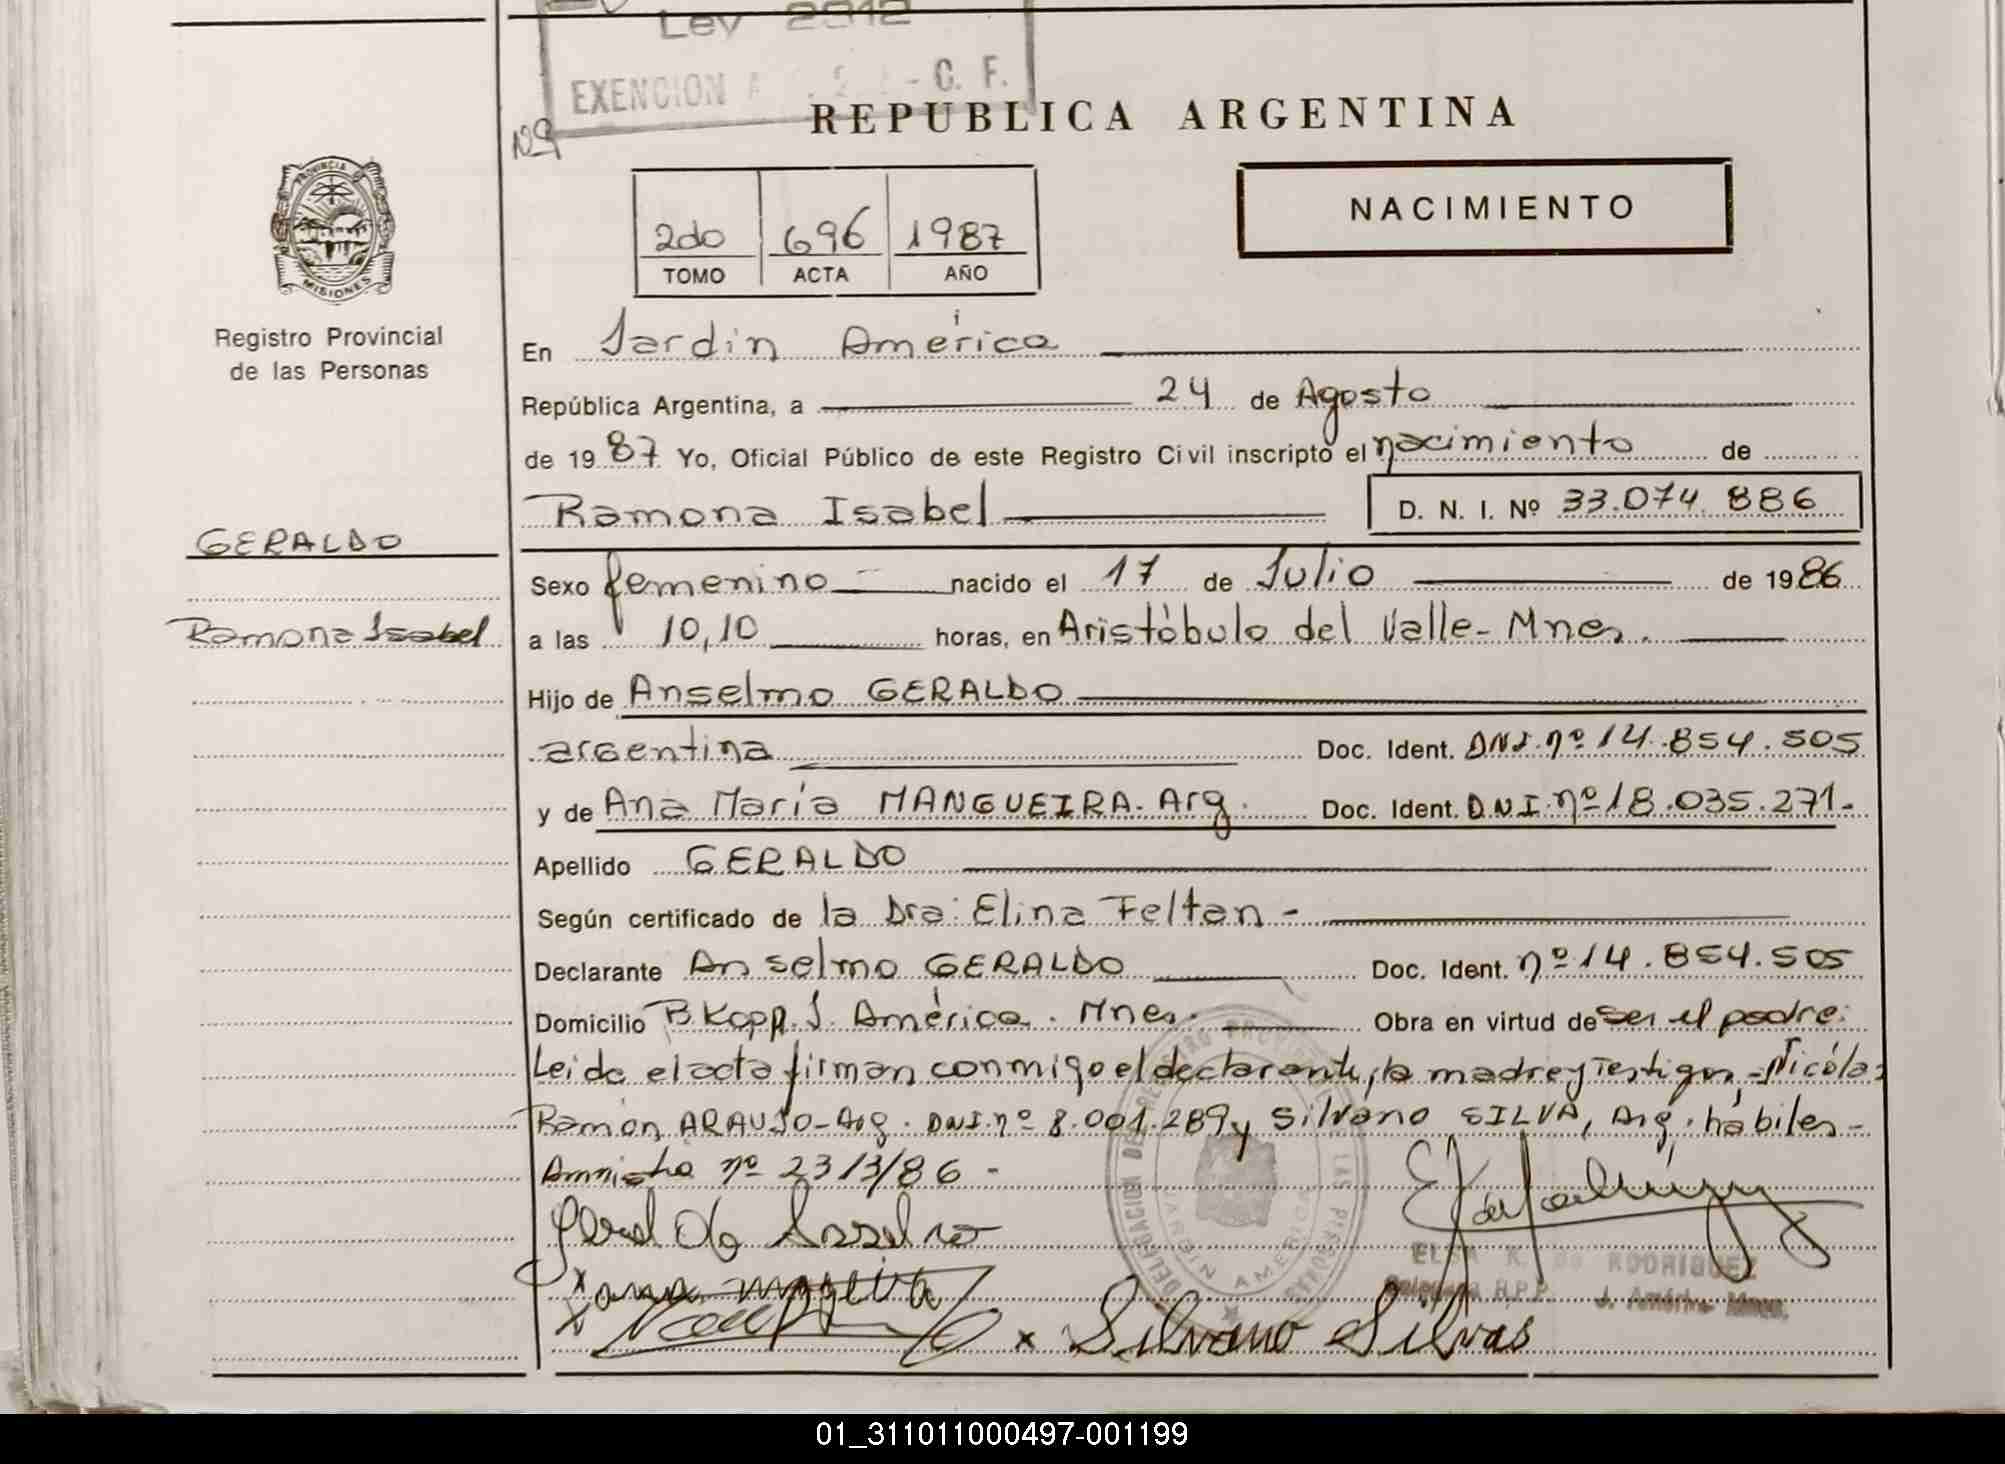 Ley 2912
EXENCION
- C. F.
Nº
REPUBLICA ARGENTINA
PROVINCIA D
MISIONES
Registro Provincial
de las Personas
2do 696 1987
TOMO ACTA AÑO
NACIMIENTO
En Jardín América
República Argentina, a 24 de Agosto
de 1987 Yo, Oficial Público de este Registro Civil inscripto el nacimiento de
Ramona Isabel D. N. I. Nº 33.074.886
GERALDO
Sexo femenino nacido el 17 de Julio de 1986
Ramona Isabel
a las 10,10 horas, en Aristóbulo del Valle- Mnes.
Hijo de Anselmo GERALDO
argentina Doc. Ident. DNI.nº 14.854.505
y de Ana María MANGUEIRA. Arg. Doc. Ident. D.N.I.nº18.035.271.-
Apellido GERALDO
Según certificado de la Dra. Elina Feltan -
Declarante Anselmo GERALDO Doc. Ident. nº14.854.505
Domicilio B. Kopp. J. América. Mnes. Obra en virtud de ser el padre.
Leida el acta firman conmigo el declarante, la madre y Testigos, Nicólas
Ramón ARAUJO-Arg. DNI.nº 8.001.289 y Silvano SILVA, Arg. hábiles-
Amnistia nº 23/3/86 -
x Silvano Silvas
DELEGACION DEL REGISTRO PROVINCIAL DE LAS PERSONAS
JARDIN AMERICA
RODRIGUEZ
J. América
01_311011000497-001199